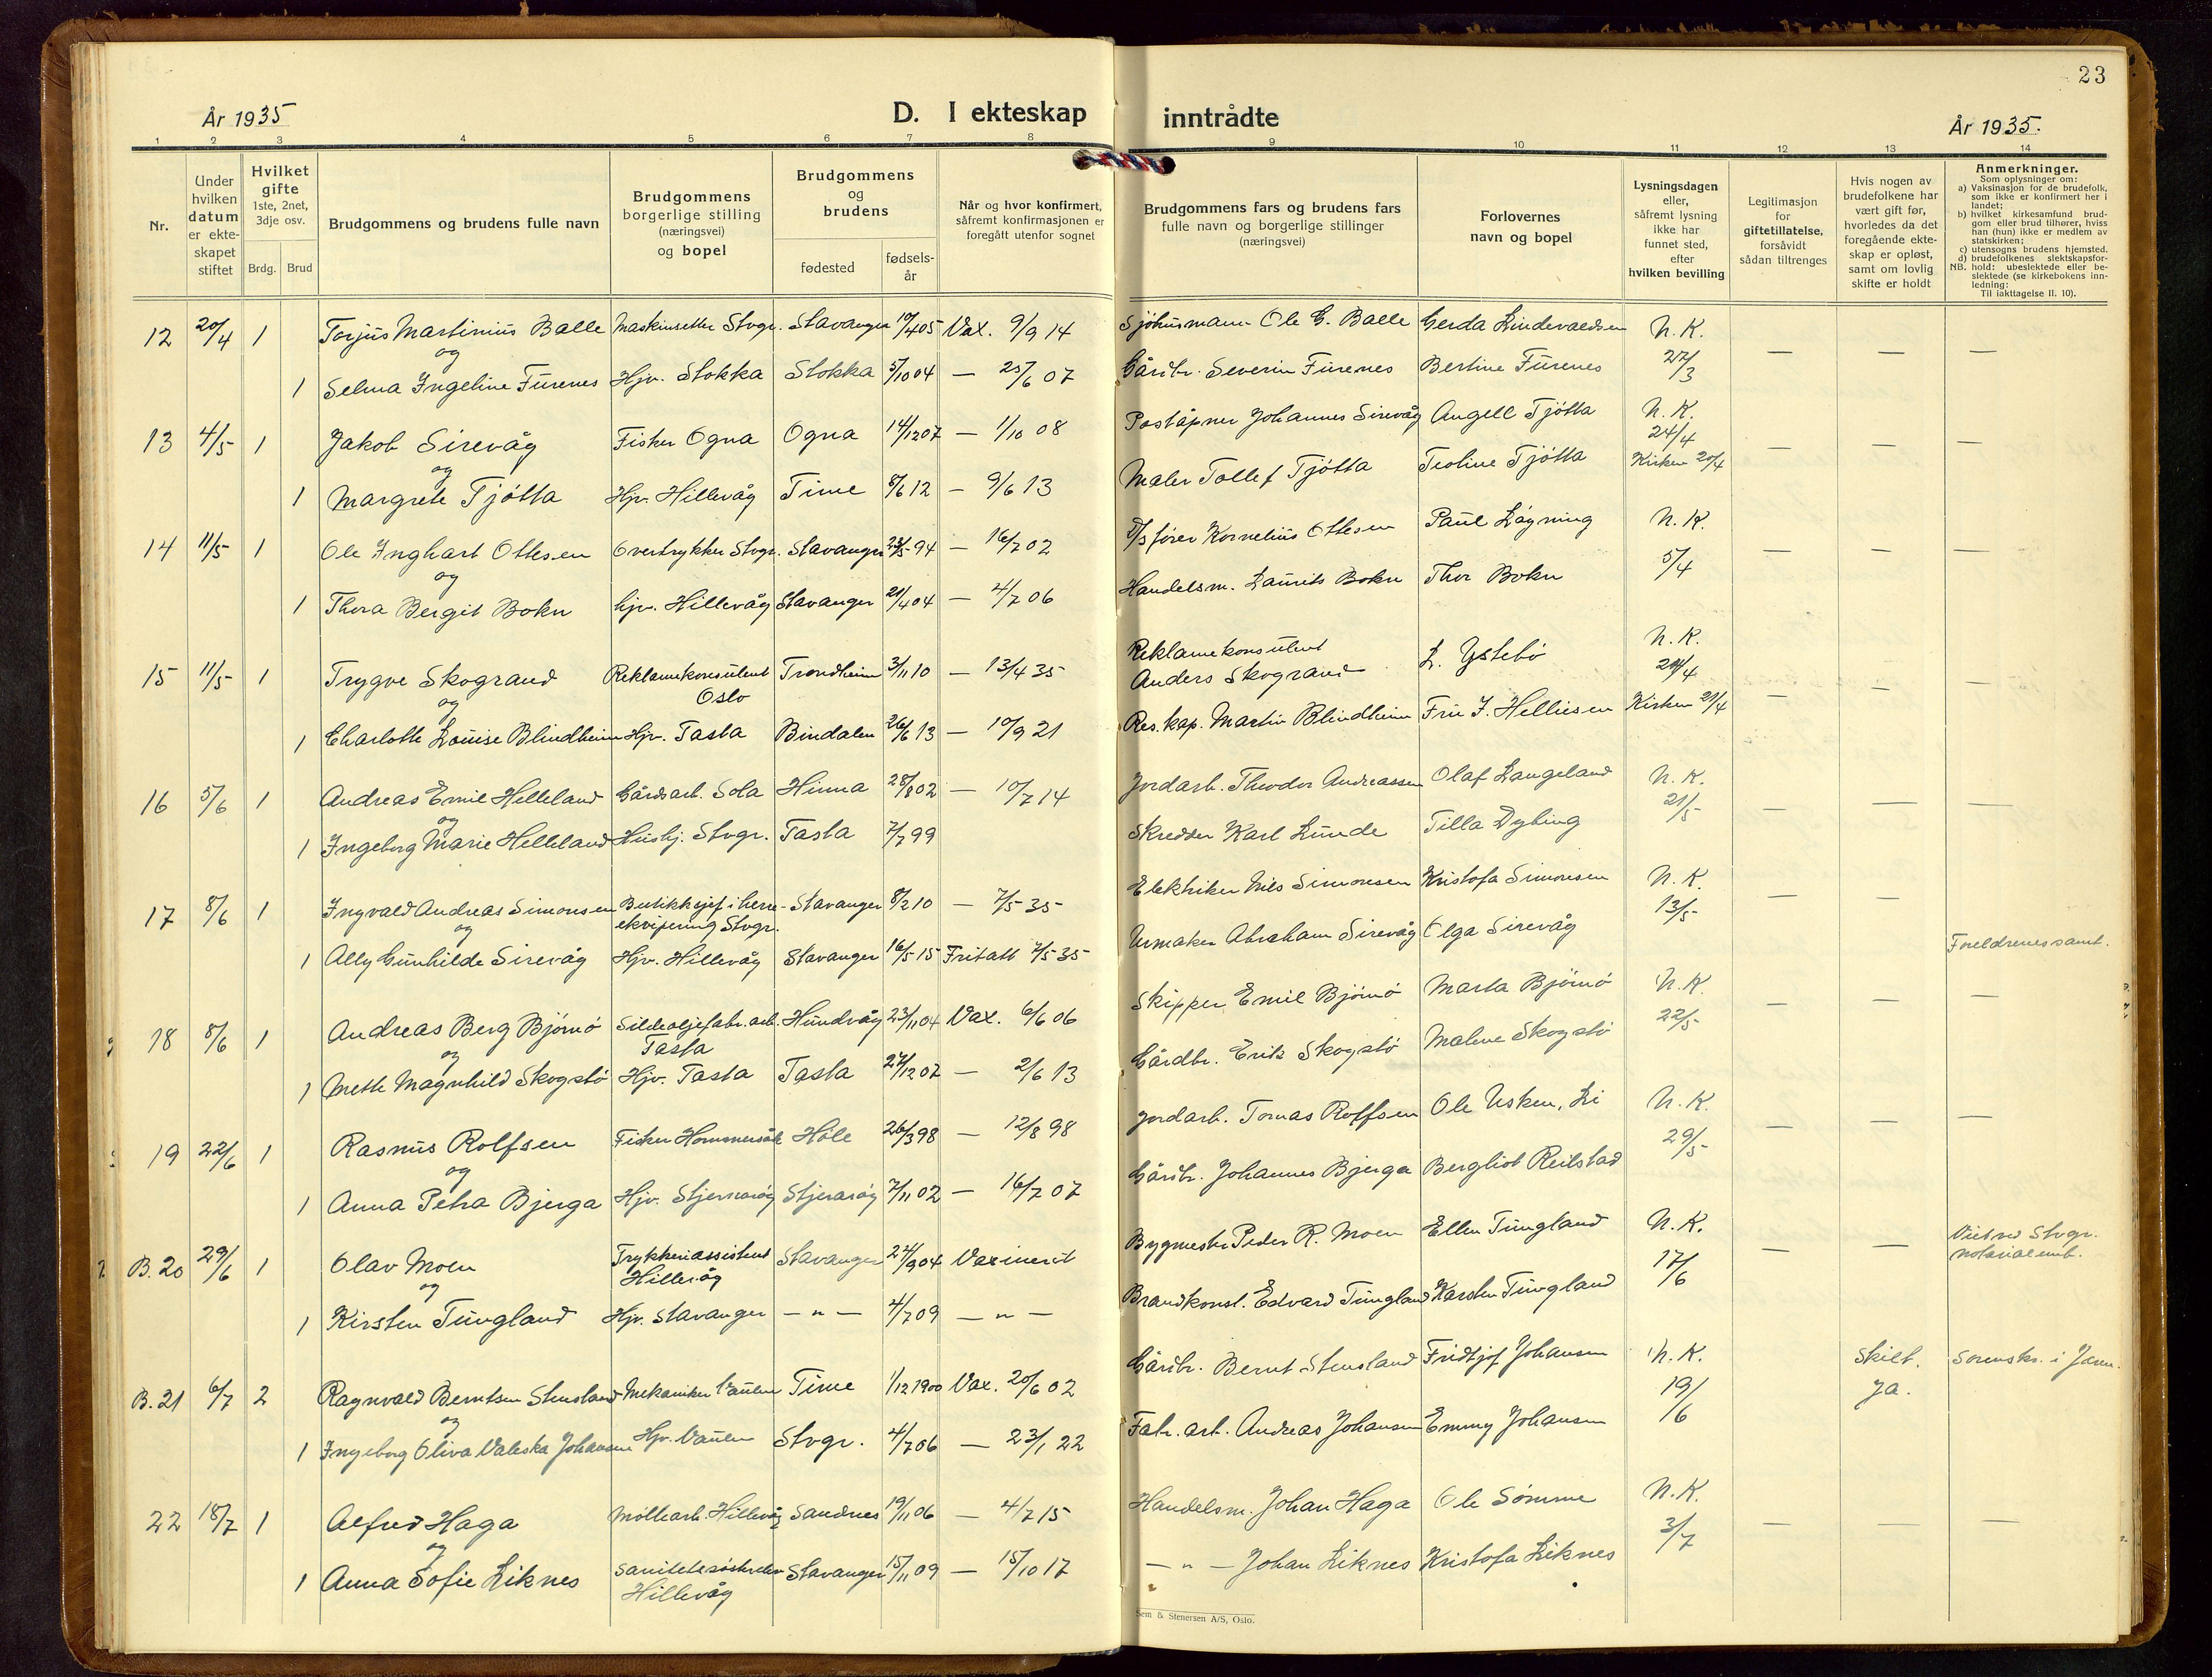 23
År 1935
D. I ekteskap inntrådte
År 1935.
1 2 3 4 5 6 7 8 9 10 11 12 13 14
Nr.
Under hvilken datum er ekteskapet stiftet
Hvilket gifte 1ste, 2net, 3dje osv.
Brdg. Brud
Brudgommens og brudens fulle navn
Brudgommens borgerlige stilling (næringsvei) og bopel
Brudgommens og brudens
fødested
fødsels-år
Når og hvor konfirmert, såfremt konfirmasjonen er foregått utenfor sognet
Brudgommens fars og brudens fars fulle navn og borgerlige stillinger (næringsvei)
Forlovernes navn og bopel
Lysningsdagen eller, såfremt lysning ikke har funnet sted, efter hvilken bevilling
Legitimasjon for giftetillatelse, forsåvidt sådan tiltrenges
Hvis nogen av brudefolkene har vært gift før, hvorledes da det foregående ekteskap er opløst, samt om lovlig skifte er holdt
Anmerkninger.
Som oplysninger om:
a) Vaksinasjon for de brudefolk, som ikke er konfirmert her i landet;
b) hvilket kirkesamfund brudgom eller brud tilhører, hviss han (hun) ikke er medlem av statskirken;
c) utensogns brudens hjemsted.
d) brudefolkenes slektskapsforhold: ubeslektede eller beslektede (se kirkebokens innledning:
NB.
Til iakttagelse II. 10).
12 20/4 1 Torjus Martinius Balle Maskinsetter Stvgr. Stavanger 10/4 05 Vax. 9/9 14 Sjøhusmann Ole G. Balle Gerda Lindevaldsen N.K. — — —
og
1 Selma Ingeline Furenes Hjv. Stokka Stokka 5/10 04 — 25/6 07 Gårdbr. Severin Furenes Bertine Furenes 27/3
13 4/5 1 Jakob Sirevåg Fisker Ogna Ogna 14/12 07 — 1/10 08 Poståpner Johannes Sirevåg Angell Tjötta N.K. 24/4 — — —
og
1 Margrete Tjötta Hjv. Hillevåg Time 8/6 12 — 9/6 13 Maler Tollef Tjötta Teoline Tjötta Kirken 20/4
14 11/5 1 Ole Inghart Ottesen Overtrykker Stvgr. Stavanger 23/5 94 — 16/7 02 fører Kornelius Ottesen Paul Lågning N.K. — — —
og
1 Thora Bergit Bokn hjv. Hillevåg Stavanger 21/4 04 — 4/7 06 Handelsm. Laurits Bokn Thor Bokn 5/4
15 11/5 1 Trygve Skogrand Reklamekonsulent Oslo Trondheim 3/11 10 — 13/4 35 Reklamekonsulent Anders Skogrand L. Ystebö N.K. 24/4 — — —
og
1 Charlotte Louise Blindheim Hjv. Tasta Bindalen 26/6 13 — 10/9 21 Res.kap. Martin Blindheim Fru J. Helliesen Kirken 21/4
16 5/6 1 Andreas Emil Helleland Gårdsarb. Sola Hinna 28/8 02 — 10/7 14 Jordarb. Theodor Andreassen Olaf Langeland N.K. 21/5 — — —
og
1 Ingeborg Marie Helleland Hushj. Stvgr. Tasta 7/7 99 Skredder Karl Lunde Tilla Dybing
17 8/6 1 Ingvald Andreas Simonsen Butikksjef i herre-ekvipering Stvgr. Stavanger 8/2 10 — 7/5 35 Elektriker Nils Simonsen Kristofa Simonsen N.K. 13/5 — —
og
1 Ally Gunhilde Sirevåg Hjv. Hillevåg Stavanger 16/5 15 Fritatt 7/5 35 Urmaker Abraham Sirevåg Olga Sirevåg Foreldrenes samt.
18 8/6 1 Andreas Berg Björnö Sildeoljefabr.arb. Tasta Hundvåg 23/11 04 Vax. 6/6 06 Skipper Emil Björnö Marta Björnö N.K. 22/5 — — —
og
1 Mette Magnhild Skogstö Hjv. Tasta Tasta 27/12 07 — 2/6 13 Gårdbr. Erik Skogstö Malene Skogstö
19 22/6 1 Rasmus Rolfsen Fisker Hommersåk Höle 26/3 98 — 12/8 98 Jordarb. Tomas Rolfsen Ole Usken, Li N.K. 29/5 — — —
og
1 Anna Petra Bjerga Hjv. Stjernaröy Stjernaröy 7/11 02 — 16/7 07 Gårdbr. Johannes Bjerga Bergliot Reilstad
B.20 29/6 1 Olav Moen Trykkeriassistent Hillevåg Stavanger 24/9 04 Vaxinert Bygmestr. Peder R. Moen Ellen Tungland N.K. 17/6 — — Viet ved Stvgr. notarialemb.
og
1 Kirsten Tungland Hjv. Stavanger — " — 4/7 09 — " — Brandkonst. Edvard Tungland Karsten Tungland
B.21 6/7 2 Ragnvald Berntsen Stensland Mekaniker Vaulen Time 1/12 1900 Vax. 20/6 02 Gårdbr. Bernt Stensland Fridtjof Johansen N.K. 19/6 Skilt. Ja. Sorenskr. i Jæren.
og
1 Ingeborg Oliva Valeska Johansen Hjv. Vaulen Stvgr. 4/7 06 — 23/1 22 Fabr. arb. Andreas Johansen Emmy Johansen
22 18/7 1 Alfred Haga Möllearb. Hillevåg Sandnes 19/11 06 — 4/7 15 Handelsm. Johan Haga Ole Sömme N.K. 3/7 — — —
og
1 Anna Sofie Liknes Hillevåg Stavanger 15/11 09 — 15/10 17 — " — Johan Liknes Kristofa Liknes
Sem & Stenersen A/S, Oslo.